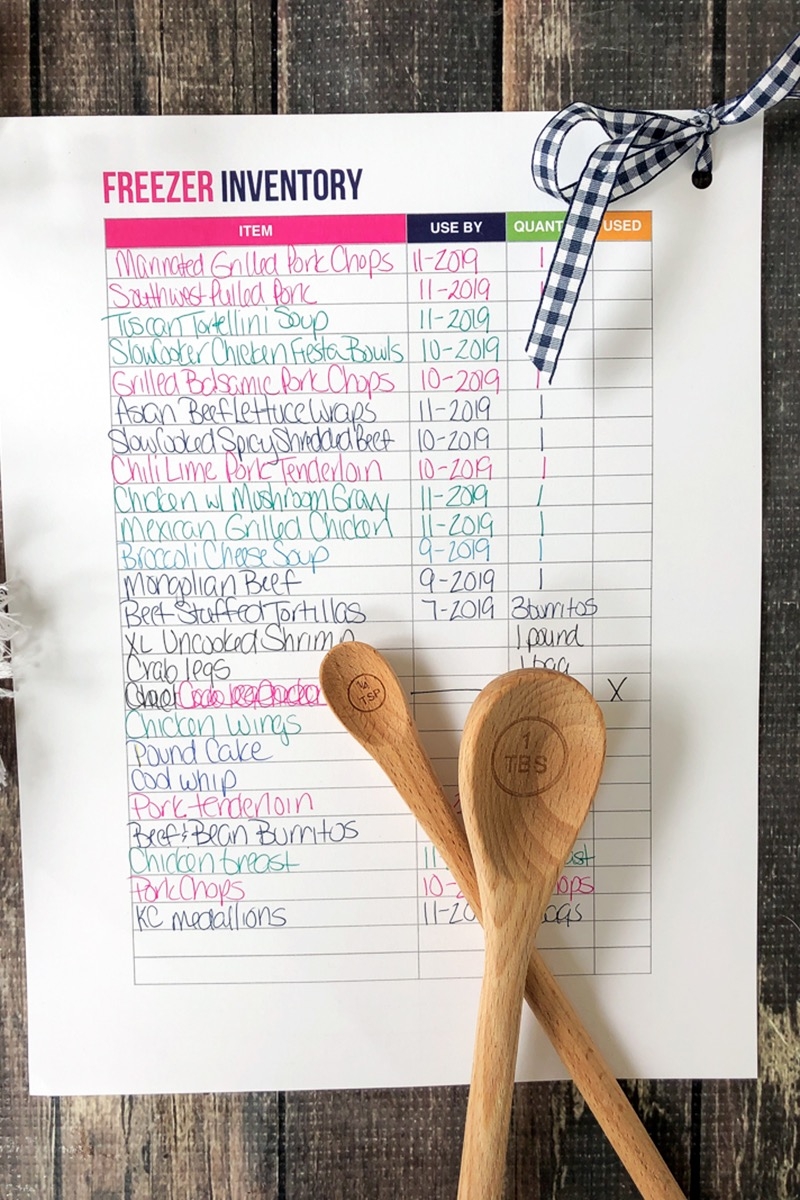 FREEZER INVENTORY
ITEM USE BY QUANT USED
Marinated Grilled Pork Chops 11-2019 1
Southwest Pulled Pork 11-2019 1
Tuscan Tortellini Soup 11-2019
Slow Cooker Chicken Fiesta Bowls 10-2019
Grilled Balsamic Pork Chops 10-2019 1
Asian Beef Lettuce Wraps 11-2019 1
Slow Cooked Spicy Shredded Beef 10-2019 1
Chili Lime Pork Tenderloin 10-2019 1
Chicken w/ Mushroom Gravy 11-2019 1
Mexican Grilled Chicken 11-2019 1
Broccoli Cheese Soup 9-2019 1
Mongolian Beef 9-2019 1
Beef Stuffed Tortillas 7-2019 3 burritos
XL Uncooked Shrimp 1 pound
Crab legs 1 bag
X
Chicken Wings
Pound Cake
Cool whip
Pork tenderloin
Beef & Bean Burritos
Chicken breast 11
Pork Chops 10- hops
KC medallions 11-20
1 TBS
TSP